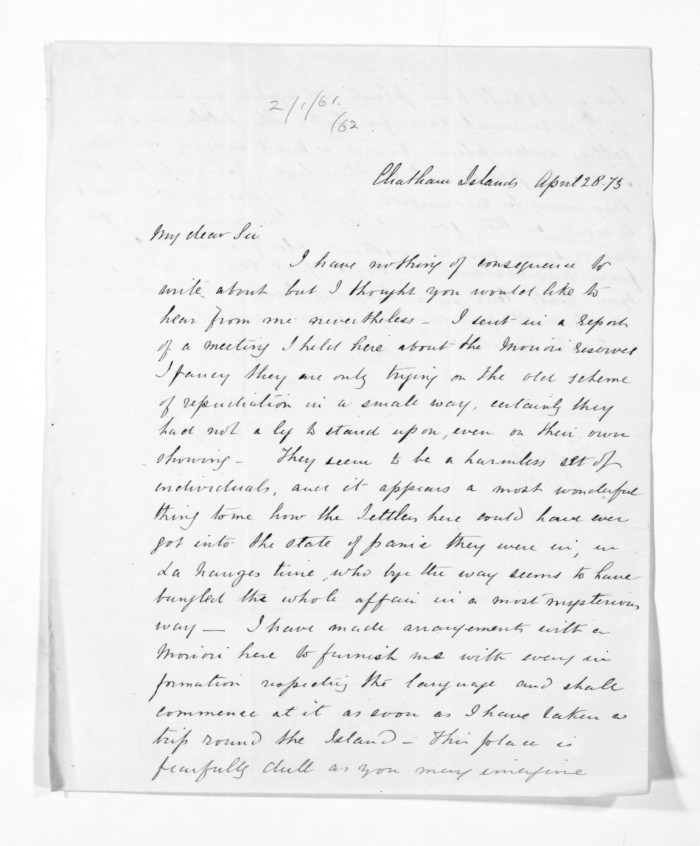 2/1/61.
/62.
Chatham Islands April 28. 73
My dear Sir
I have nothing of consequence to
write about but I thought you would like to
hear from me nevertheless - I sent in a report
of a meeting I held here about the Moriori reserves
I fancy they are only trying on the old scheme
of repudiation in a small way, certainly they
had not a leg to stand upon, even on their own
showing - They seem to be a harmless set of
individuals, and it appears a most wonderful
thing to me how the Settlers here could have ever
got into the state of panic they were in, in
La Nauzes time, who bye the way seems to have
bungled the whole affair in a most mysterious
way - I have made arrangements with a
Moriori here to furnish me with every in
formation respecting the language and shall
commence at it as soon as I have taken a
trip round the Island - This place is
fearfully dull as you may imagine